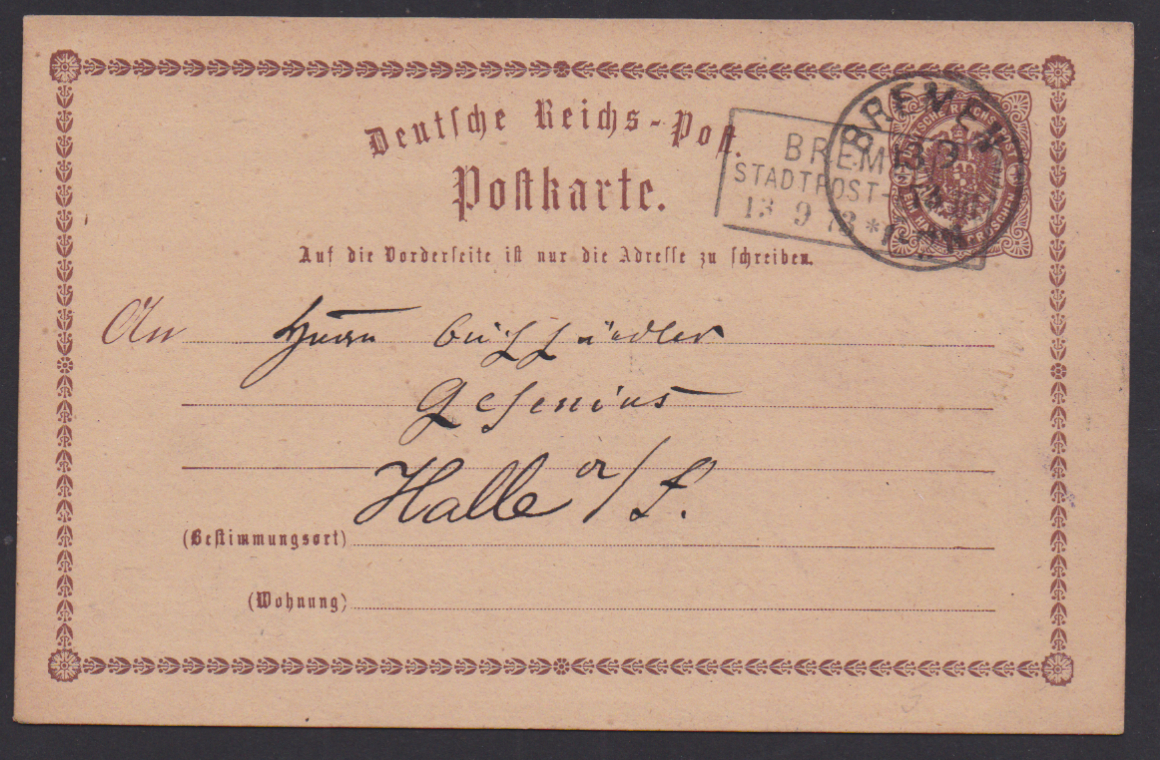 Deutsche Reichs-Post.
Postkarte.
Auf die Vorderseite ist nur die Adresse zu schreiben.
BREMEN
13 9
BREM
STADTPOST-
13 9 73 *
DEUTSCHE REICHS POST
An Herrn Buchhändler
Gesenius
Halle a/S.
(Bestimmungsort)
(Wohnung)